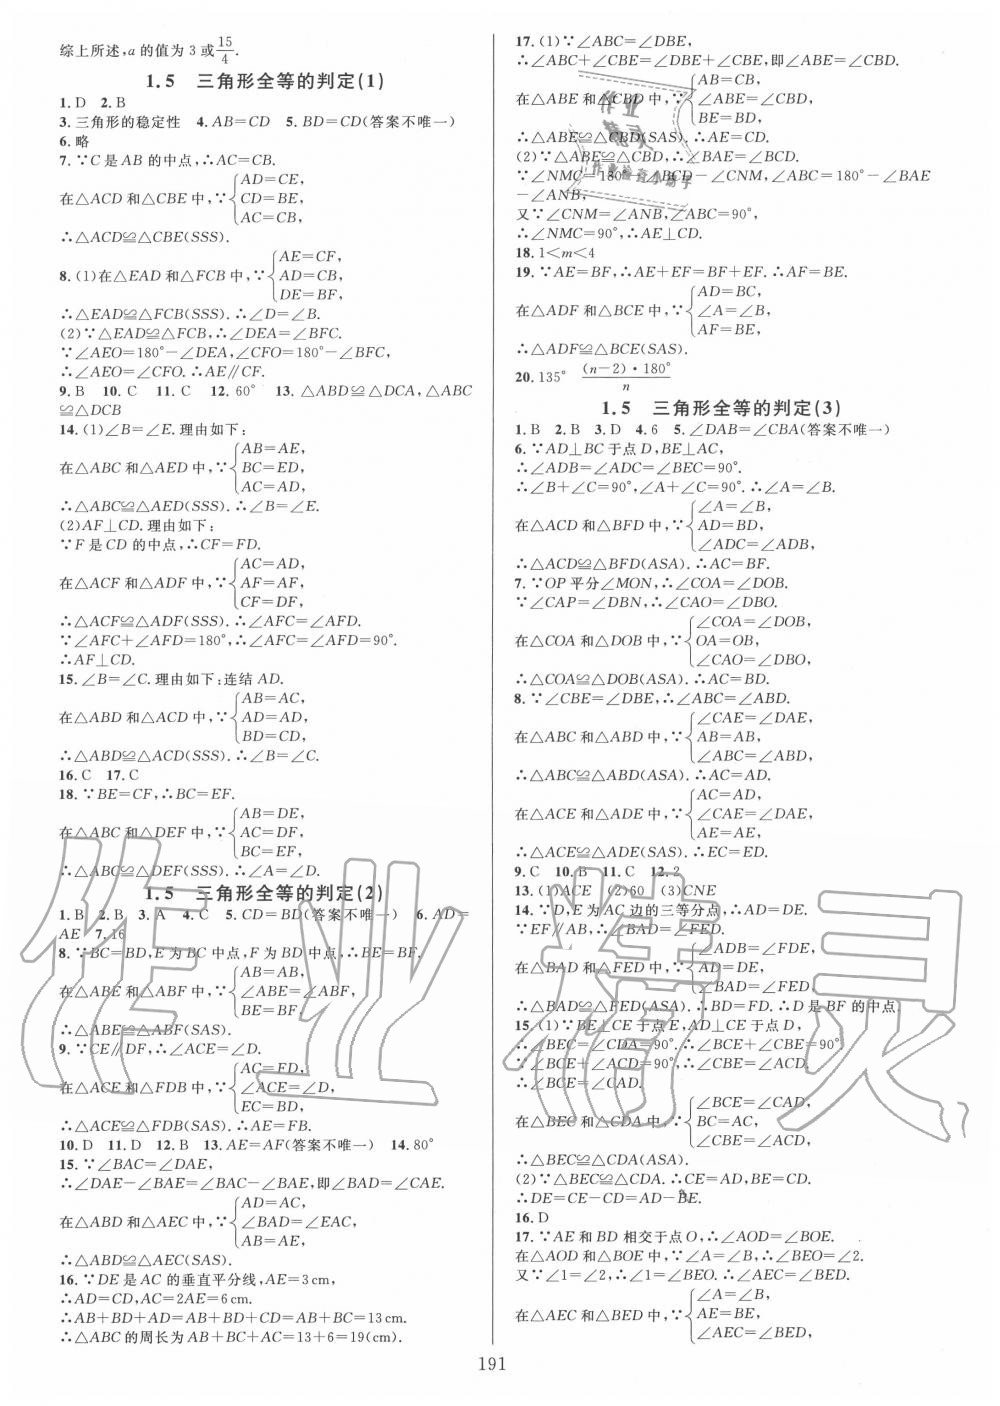 综上所述,a 的值为 3 或15/4.
1.5 三角形全等的判定(1)
1. D 2. B
3. 三角形的稳定性 4. AB=CD 5. BD=CD(答案不唯一)
6. 略
7. ∵C 是 AB 的中点,∴AC=CB.
在△ACD 和△CBE 中,∵{AD=CE,
CD=BE,
AC=CB,
∴△ACD≌△CBE(SSS).
8. (1)在△EAD 和△FCB 中,∵{AE=CF,
AD=CB,
DE=BF,
∴△EAD≌△FCB(SSS).∴∠D=∠B.
(2)∵△EAD≌△FCB,∴∠DEA=∠BFC.
∵∠AEO=180°-∠DEA,∠CFO=180°-∠BFC,
∴∠AEO=∠CFO.∴AE∥CF.
9. B 10. C 11. C 12. 60° 13. △ABD≌△DCA,△ABC
≌△DCB
14. (1)∠B=∠E.理由如下:
在△ABC 和△AED 中,∵{AB=AE,
BC=ED,
AC=AD,
∴△ABC≌△AED(SSS).∴∠B=∠E.
(2)AF⊥CD.理由如下:
∵F 是 CD 的中点,∴CF=FD.
在△ACF 和△ADF 中,∵{AC=AD,
AF=AF,
CF=DF,
∴△ACF≌△ADF(SSS).∴∠AFC=∠AFD.
∵∠AFC+∠AFD=180°,∴∠AFC=∠AFD=90°.
∴AF⊥CD.
15. ∠B=∠C.理由如下:连结 AD.
在△ABD 和△ACD 中,∵{AB=AC,
AD=AD,
BD=CD,
∴△ABD≌△ACD(SSS).∴∠B=∠C.
16. C 17. C
18. ∵BE=CF,∴BC=EF.
在△ABC 和△DEF 中,∵{AB=DE,
AC=DF,
BC=EF,
∴△ABC≌△DEF(SSS).∴∠A=∠D.
1.5 三角形全等的判定(2)
1. B 2. B 3. A 4. C 5. CD=BD(答案不唯一) 6. AD=
AE 7. 16
8. ∵BC=BD,E 为 BC 中点,F 为 BD 中点,∴BE=BF.
在△ABE 和△ABF 中,∵{AB=AB,
∠ABE=∠ABF,
BE=BF,
∴△ABE≌△ABF(SAS).
9. ∵CE∥DF,∴∠ACE=∠D.
在△ACE 和△FDB 中,∵{AC=FD,
∠ACE=∠D,
EC=BD,
∴△ACE≌△FDB(SAS).∴AE=FB.
10. D 11. D 12. B 13. AE=AF(答案不唯一) 14. 80°
15. ∵∠BAC=∠DAE,
∴∠DAE-∠BAE=∠BAC-∠BAE,即∠BAD=∠CAE.
在△ABD 和△AEC 中,∵{AD=AC,
∠BAD=∠EAC,
AB=AE,
∴△ABD≌△AEC(SAS).
16. ∵DE 是 AC 的垂直平分线,AE=3 cm,
∴AD=CD,AC=2AE=6 cm.
∴AB+BD+AD=AB+BD+CD=AB+BC=13 cm.
∴△ABC 的周长为 AB+BC+AC=13+6=19(cm).
17. (1)∵∠ABC=∠DBE,
∴∠ABC+∠CBE=∠DBE+∠CBE,即∠ABE=∠CBD.
在△ABE 和△CBD 中,∵{AB=CB,
∠ABE=∠CBD,
BE=BD,
∴△ABE≌△CBD(SAS).∴AE=CD.
(2)∵△ABE≌△CBD,∴∠BAE=∠BCD.
∵∠NMC=180°-∠BCD-∠CNM,∠ABC=180°-∠BAE
-∠ANB,
又∵∠CNM=∠ANB,∠ABC=90°,
∴∠NMC=90°,∴AE⊥CD.
18. 1<m<4
19. ∵AE=BF,∴AE+EF=BF+EF.∴AF=BE.
在△ADF 和△BCE 中,∵{AD=BC,
∠A=∠B,
AF=BE,
∴△ADF≌△BCE(SAS).
20. 135° (n-2)·180°/n
1.5 三角形全等的判定(3)
1. B 2. B 3. D 4. 6 5. ∠DAB=∠CBA(答案不唯一)
6. ∵AD⊥BC 于点 D,BE⊥AC,
∴∠ADB=∠ADC=∠BEC=90°.
∴∠B+∠C=90°,∠A+∠C=90°.∴∠A=∠B.
在△ACD 和△BFD 中,∵{∠A=∠B,
AD=BD,
∠ADC=∠ADB,
∴△ACD≌△BFD(ASA).∴AC=BF.
7. ∵OP 平分∠MON,∴∠COA=∠DOB.
∵∠CAP=∠DBN,∴∠CAO=∠DBO.
在△COA 和△DOB 中,∵{∠COA=∠DOB,
OA=OB,
∠CAO=∠DBO,
∴△COA≌△DOB(ASA).∴AC=BD.
8. ∵∠CBE=∠DBE,∴∠ABC=∠ABD.
在△ABC 和△ABD 中,∵{∠CAE=∠DAE,
AB=AB,
∠ABC=∠ABD,
∴△ABC≌△ABD(ASA).∴AC=AD.
在△ACE 和△ADE 中,∵{AC=AD,
∠CAE=∠DAE,
AE=AE,
∴△ACE≌△ADE(SAS).∴EC=ED.
9. C 10. B 11. C 12. 2
13. (1)ACE (2)60 (3)CNE
14. ∵D,E 为 AC 边的三等分点,∴AD=DE.
∵EF∥AB,∴∠BAD=∠FED.
在△BAD 和△FED 中,∵{∠ADB=∠FDE,
AD=DE,
∠BAD=∠FED,
∴△BAD≌△FED(ASA).∴BD=FD.∴D 是 BF 的中点.
15. (1)∵BE⊥CE 于点 E,AD⊥CE 于点 D,
∴∠BEC=∠CDA=90°.∴∠BCE+∠CBE=90°.
∵∠BCE+∠ACD=90°,∴∠CBE=∠ACD.
∴∠BCE=∠CAD.
在△BEC 和△CDA 中,∵{∠BCE=∠CAD,
BC=AC,
∠CBE=∠ACD,
∴△BEC≌△CDA(ASA).
(2)∵△BEC≌△CDA.∴CE=AD,BE=CD.
∴DE=CE-CD=AD-BE.
16. D
17. ∵AE 和 BD 相交于点 O,∴∠AOD=∠BOE.
在△AOD 和△BOE 中,∵∠A=∠B,∴∠BEO=∠2.
又∵∠1=∠2,∴∠1=∠BEO.∴∠AEC=∠BED.
在△AEC 和△BED 中,∵{∠A=∠B,
AE=BE,
∠AEC=∠BED,
191
作业精灵